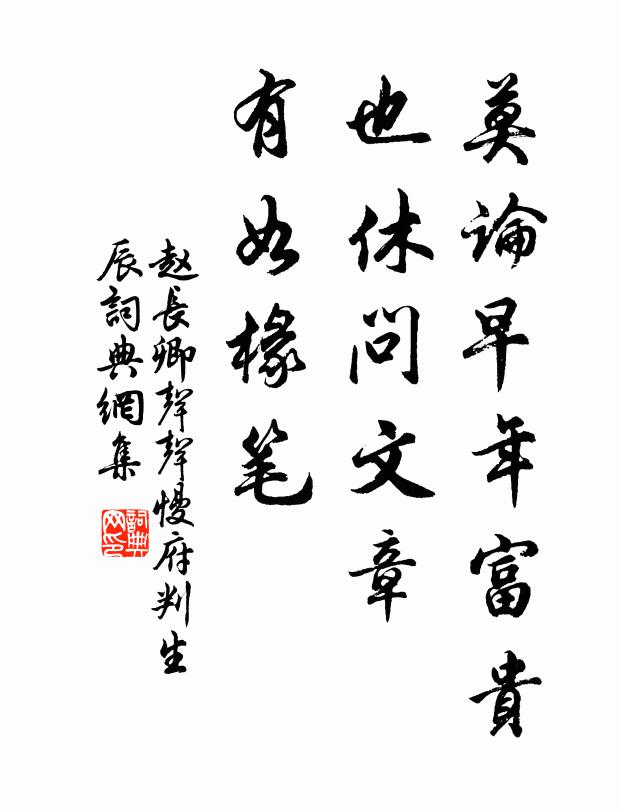 莫論早年富貴
也休問文章
有如椽笔
赵長卿聲聲慢府判生
辰詞典網集
詞典
网印